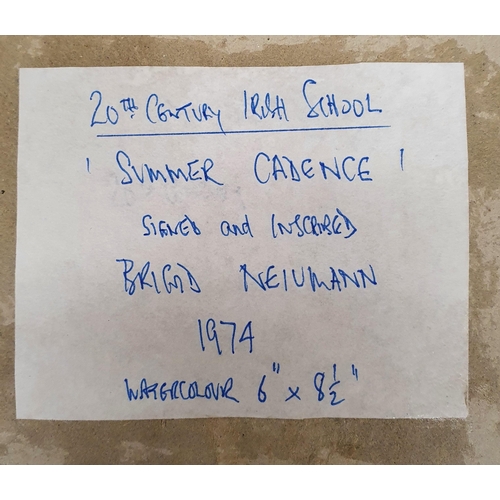 20TH CENTURY IRISH SCHOOL
' SUMMER CADENCE '
SIGNED and INSCRIBED
BRIGID NEIUMANN
1974
WATERCOLOUR 6" x 8½"